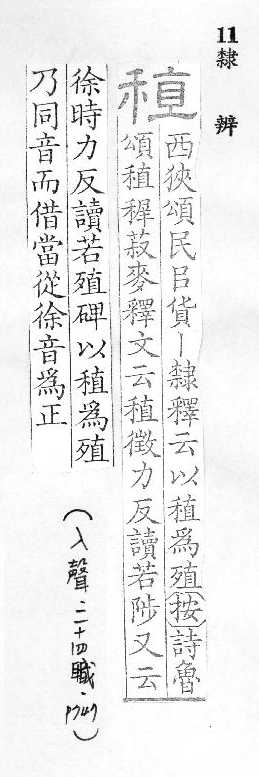 11隸 辨
稙
西狹頌民㠯貨丨隸釋云以稙爲殖(按)詩魯
頌稙穉菽麥釋文云稙徵力反讀若陟又云
徐時力反讀若殖碑以稙爲殖
乃同音而借當從徐音爲正
(入聲·二十四職·P747)